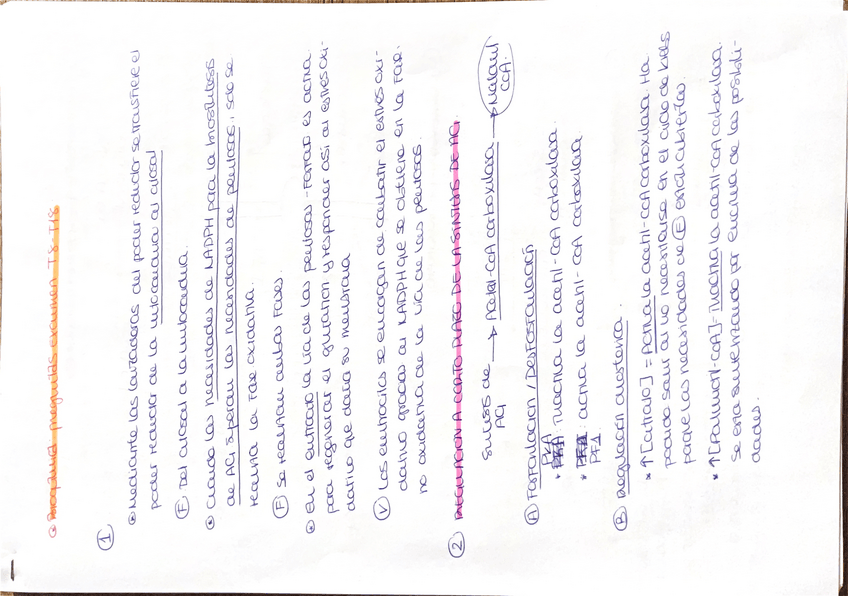 Bioquímica preguntas examen T8-T18
①
Mediante las lanzaderas del poder reductor se transfiere el
poder reductor de la mitocondria al citosol
Ⓕ Del citosol a la mitocondria.
Cuando las necesidades de NADPH para la biosíntesis
de AG superan las necesidades de pentosas, solo se
realiza la fase oxidativa.
Ⓕ Se realizan ambas fases.
En el eritrocito la vía de las pentosas-fosfato es activa
para regenerar el glutation y responder así al estrés oxi-
dativo que daña su membrana
Ⓥ Los eritrocitos se encargan de combatir el estrés oxi-
dativo gracias al NADPH que se obtiene en la fase
no oxidativa de la vía de las pentosas.
② REGULACIÓN A CORTO PLAZO DE LA SÍNTESIS DE AG.
síntesis de AG → Acetil-CoA carboxilasa → Malonil CoA.
Ⓐ Fosforilación / Desfosforilación
* PKA: inactiva la acetil-CoA carboxilasa.
* PF1: activa la acetil-CoA carboxilasa.
Ⓑ Regulación alostérica.
* ↑[citrato] = Activa la acetil-CoA carboxilasa. Ha
podido salir al no necesitarse en el ciclo de krebs
porque las necesidades de Ⓔ están cubiertas.
* ↑[Palmitoil-CoA] = Inactiva la acetil-CoA carboxilasa.
se está sintetizando por encima de las posibili-
dades.